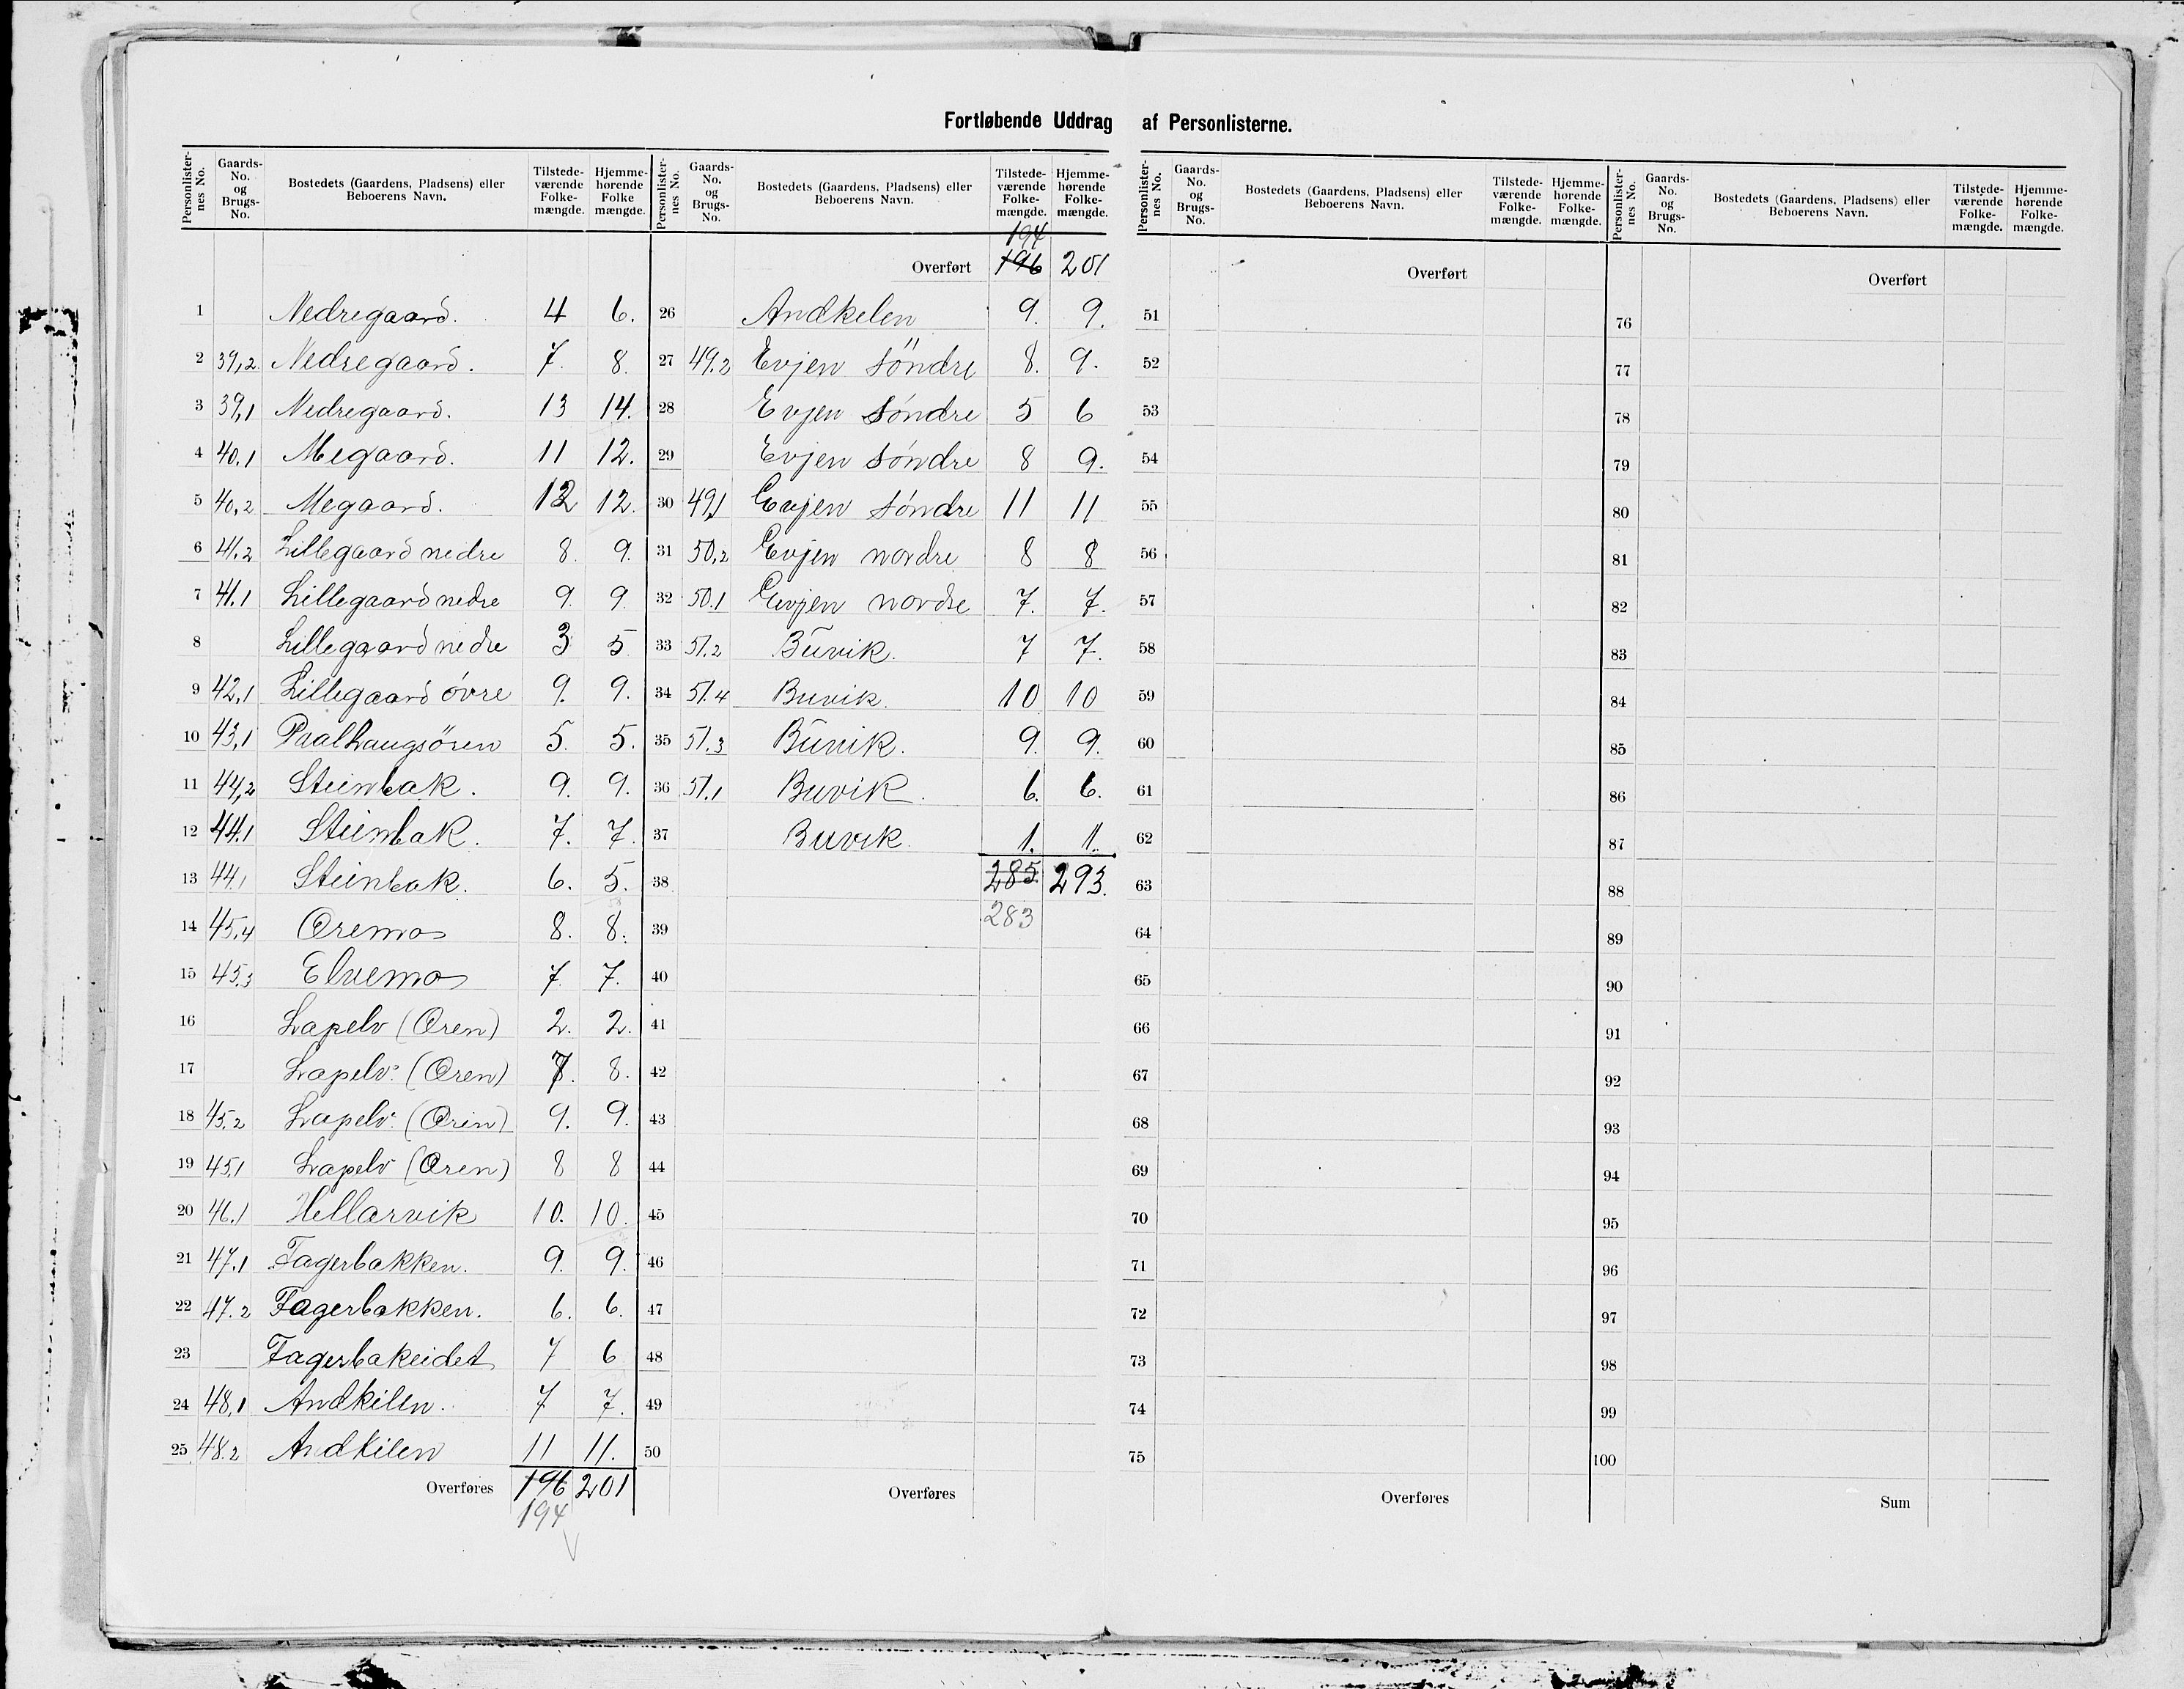 Fortløbende Uddrag af Personlisterne.
Personlister-nes No. Gaards-No. og Brugs-No. Bostedets (Gaardens, Pladsens) eller Beboerens Navn. Tilstede-værende Folke-mængde. Hjemme-hørende Folke mængde.
1 Nedregaard. 4 6.
2 39,2 Nedregaard. 7. 8.
3 39,1 Nedregaard. 13 14.
4 40.1 Megaard. 11 12.
5 40,2 Megaard. 12 12.
6 41.2 Lillegaard nedre 8. 9.
7 41.1 Lillegaard nedre 9. 9
8 Lillegaard nedre 3 5
9 42,1 Lillegaard övre 9. 9.
10 43,1 Paalhaugsören 5. 5.
11 44,2 Steinbak. 9. 9.
12 44.1 Steinbak. 7. 7.
13 44,1 Steinbak. 6. 5.
14 45,4 Oremo 8. 8.
15 45.3 Elvemo 7. 7.
16 Lapelv (Oren) 2. 2.
17 Lapelv. (Oren) 7. 8.
18 45.2 Lapelv. (Oren) 9. 9.
19 45.1 Lapelv (Oren) 8 8
20 46.1 Hellarvik 10. 10.
21 47.1 Fagerbakken. 9. 9.
22 47.2 Fagerbakken. 6. 6.
23 Fagerbakeidet 7 6
24 48,1 Andkilen. 7 7.
25 48.2 Andkilen 11 11.
Overføres 196 201
194
Personlister-nes No. Gaards-No. og Brugs-No. Bostedets (Gaardens, Pladsens) eller Beboerens Navn. Tilstede-værende Folke-mængde. Hjemme-hørende Folke-mængde.
194
Overført 196 201
26 Andkelen 9. 9.
27 49.2 Evjen söndre 8. 9.
28 Evjen söndre 5 6
29 Evjen söndre 8 9.
30 49,1 Evjen söndre 11 11
31 50,2 Evjen nordre 8 8
32 50.1 Evjen nordre 7. 7.
33 51.2 Buvik. 7 7.
34 51.4 Buvik. 10 10
35 51.3 Buvik. 9. 9.
36 51.1 Buvik. 6. 6.
37 Buvik. 1. 1.
38 285 293.
39 283
40
41
42
43
44
45
46
47
48
49
50
Overføres
Personlister-nes No. Gaards-No. og Brugs-No. Bostedets (Gaardens, Pladsens) eller Beboerens Navn. Tilstede-værende Folke-mængde. Hjemme-hørende Folke-mængde.
Overført
51
52
53
54
55
56
57
58
59
60
61
62
63
64
65
66
67
68
69
70
71
72
73
74
75
Overføres
Personlister-nes No. Gaards-No. og Brugs-No. Bostedets (Gaardens, Pladsens) eller Beboerens Navn. Tilstede-værende Folke-mængde. Hjemme-hørende Folke-mængde.
Overført
76
77
78
79
80
81
82
83
84
85
86
87
88
89
90
91
92
93
94
95
96
97
98
99
100
Sum